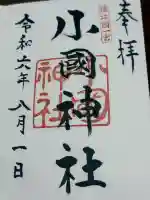 奉拝
遠江國一宮
小國神社
令和六年八月一日